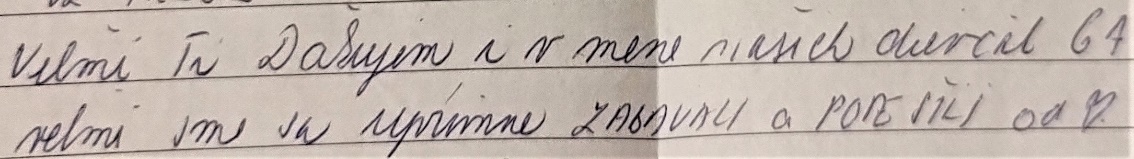 Velmi Ti Ďakujem i v mene našich dievčat 64
velmi sme sa úprimne ZABAVALI a POTEŠILI od